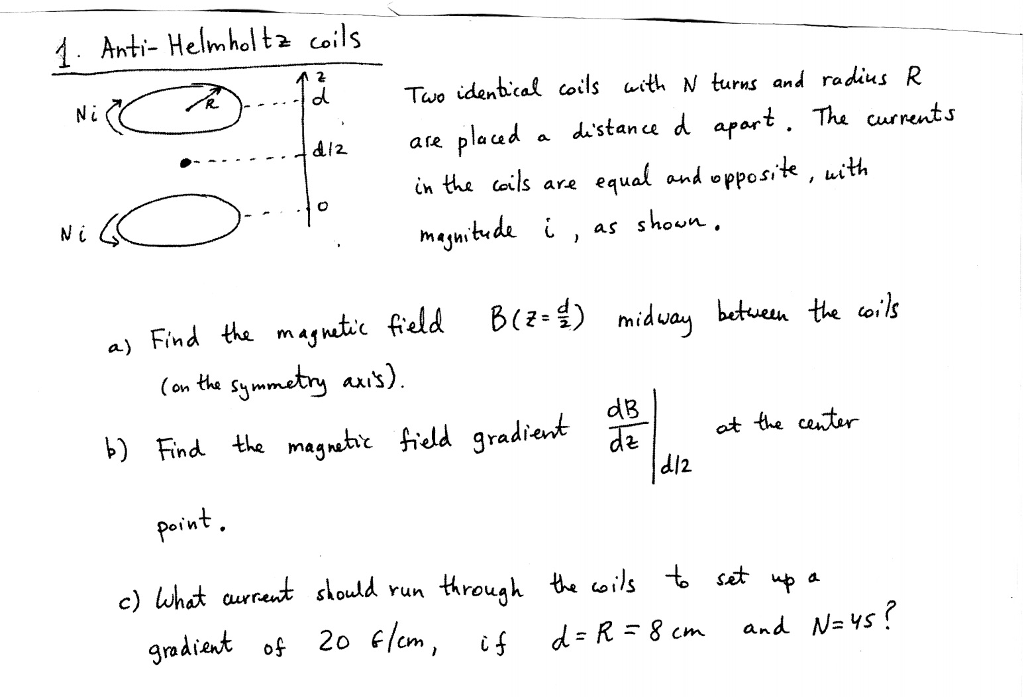 1. Anti-Helmholtz coils
z
Ni R d
d/2
Ni 0
Two identical coils with N turns and radius R
are placed a distance d apart. The currents
in the coils are equal and opposite, with
magnitude i, as shown.
a) Find the magnetic field B(z=d/2) midway between the coils
(on the symmetry axis).
b) Find the magnetic field gradient dB/dz |d/2 at the center
point.
c) What current should run through the coils to set up a
gradient of 20 G/cm, if d=R=8 cm and N=45?